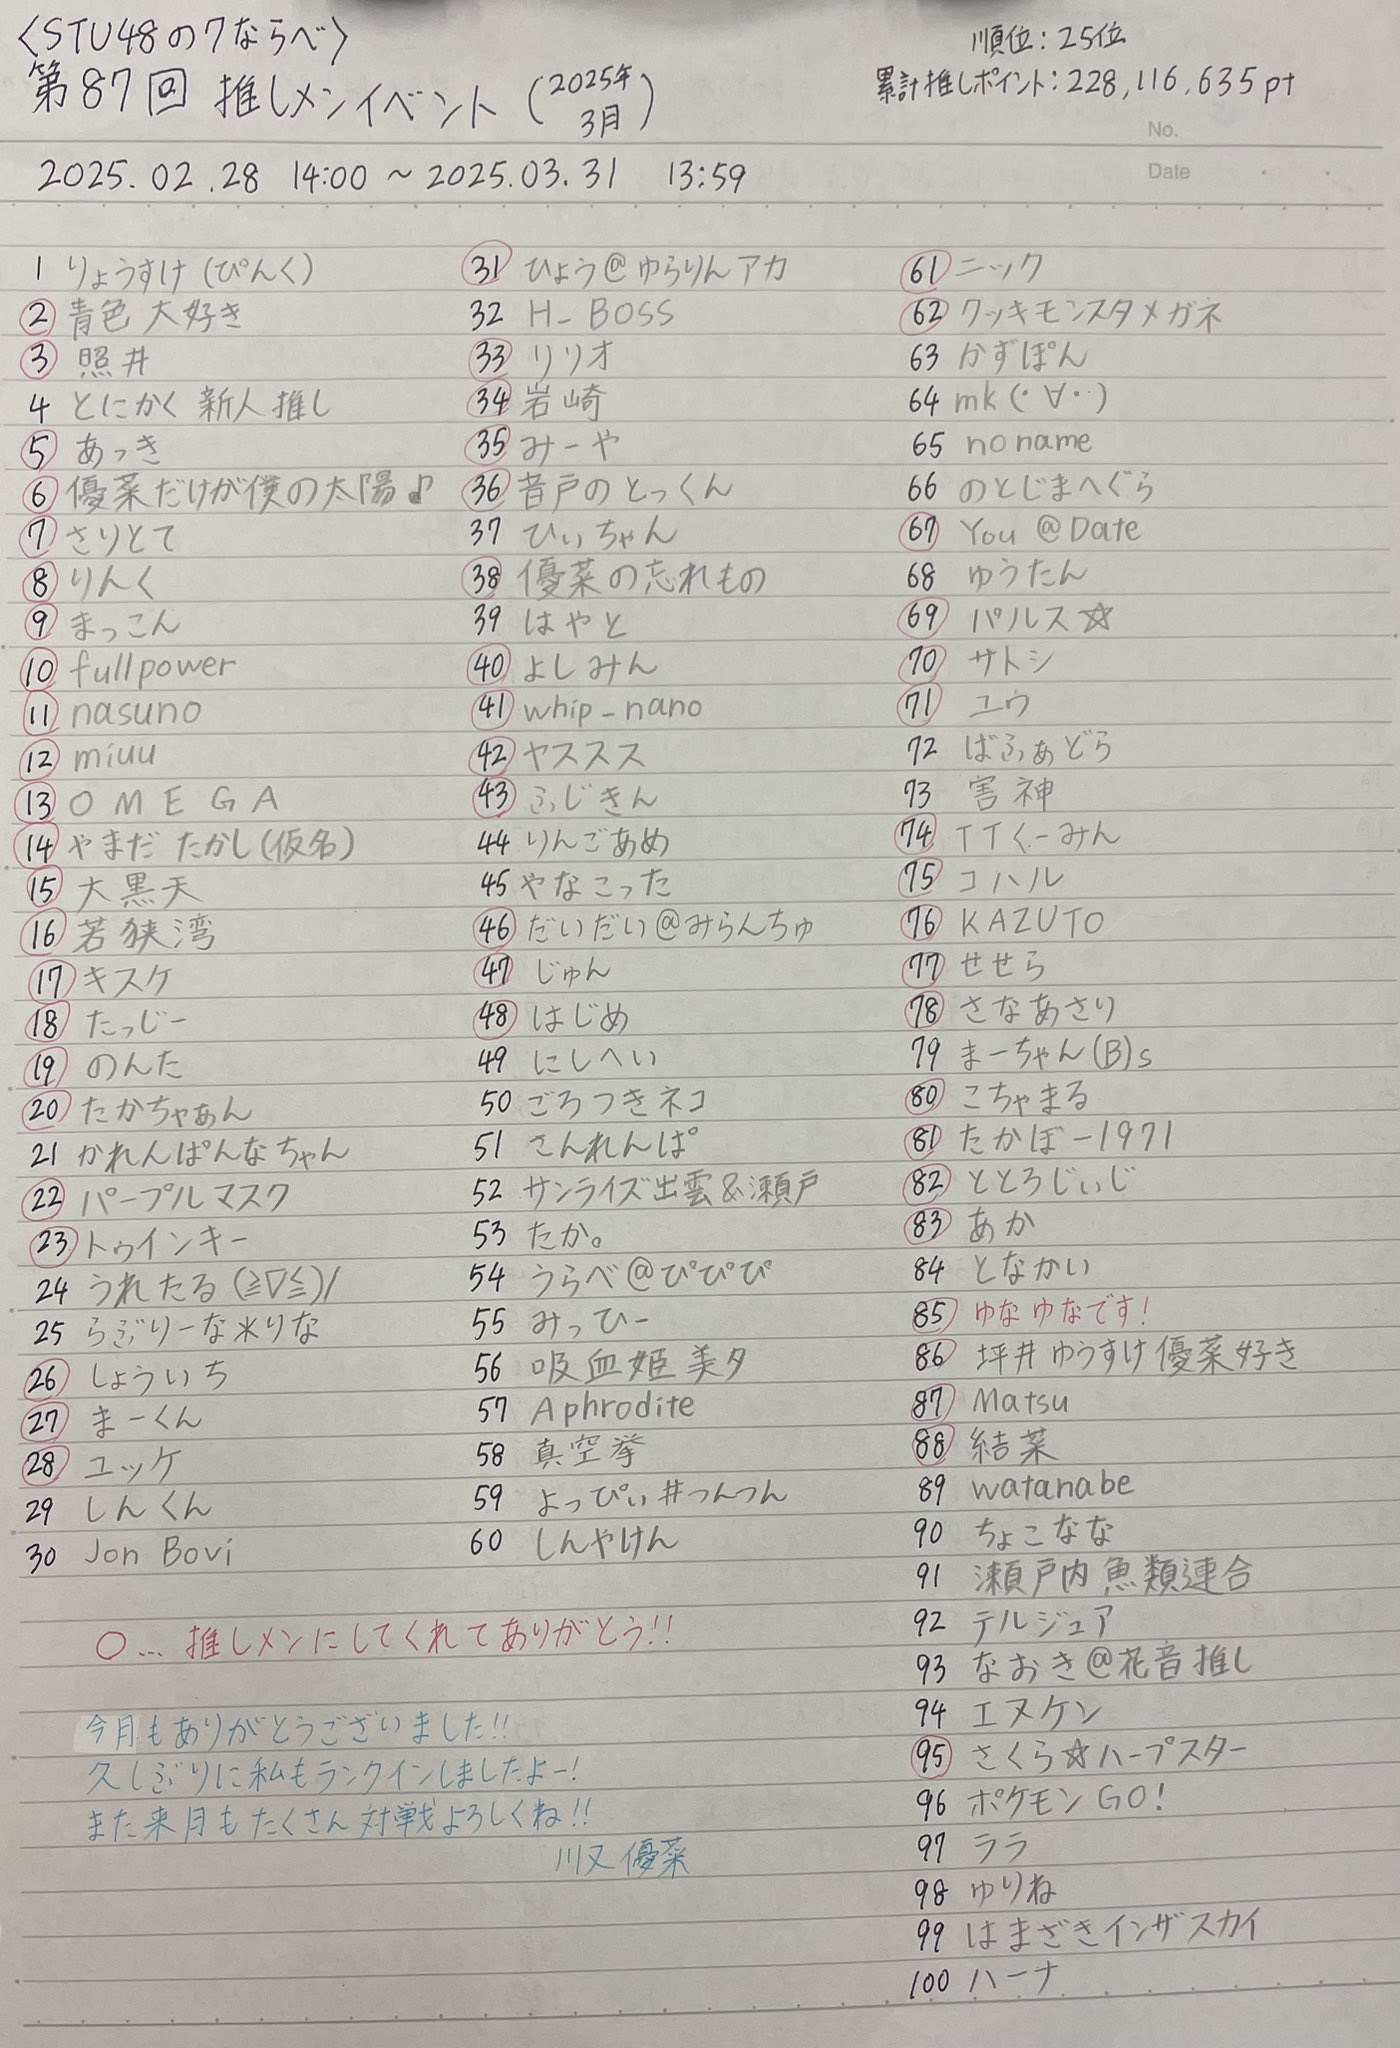 〈STU48の7ならべ〉
第87回 推しメンイベント (2025年3月)
順位:25位
累計推しポイント:228,116,635pt
No.
Date
2025.02.28 14:00 ~ 2025.03.31 13:59
1 りょうすけ(ぴんく)
2 青色大好き
3 照井
4 とにかく新人推し
5 あっき
6 優菜だけが僕の太陽♪
7 さりとて
8 りんく
9 まっこん
10 fullpower
11 nasuno
12 miuu
13 OMEGA
14 やまだ たかし(仮名)
15 大黒天
16 若狭湾
17 キスケ
18 たっじー
19 のんた
20 たかちゃぁん
21 かれんぱんなちゃん
22 パープルマスク
23 トゥインキー
24 うれたる(≧∇≦)/
25 らぶりーな米りな
26 しょういち
27 まーくん
28 ユッケ
29 しんくん
30 Jon Bovi
31 ひょう@ゆらりんアカ
32 H_BOSS
33 リリオ
34 岩崎
35 みーや
36 音戸のとっくん
37 ひぃちゃん
38 優菜の忘れもの
39 はやと
40 よしみん
41 whip_nano
42 ヤススス
43 ふじきん
44 りんごあめ
45 やなこった
46 だいだい@みらんちゅ
47 じゅん
48 はじめ
49 にしへい
50 ごろつきネコ
51 さんれんぱ
52 サンライズ出雲&瀬戸
53 たか。
54 うらべ@ぴぴぴ
55 みっひー
56 吸血姫美夕
57 Aphrodite
58 真空拳
59 よっぴぃ#つんつん
60 しんやけん
61 ニック
62 クッキモンスタメガネ
63 かずぽん
64 mk(・∀・)
65 noname
66 のとじまへぐら
67 You@Date
68 ゆうたん
69 パルス☆
70 サトシ
71 ユウ
72 ばふぁどら
73 害神
74 TTくーみん
75 コハル
76 KAZUTO
77 せせら
78 さなあさり
79 まーちゃん(B)s
80 こちゃまる
81 たかぼー1971
82 ととろじぃじ
83 あか
84 となかい
85 ゆなゆなです!
86 坪井ゆうすけ優菜好き
87 Matsu
88 結菜
89 watanabe
90 ちょこなな
91 瀬戸内魚類連合
92 テルジュア
93 なおき@花音推し
94 エヌケン
95 さくら☆ハープスター
96 ポケモンGO!
97 ララ
98 ゆりね
99 はまざきインザスカイ
100 ハーナ
○…推しメンにしてくれてありがとう!!
今月もありがとうございました!!
久しぶりに私もランクインしましたよー!
また来月もたくさん対戦よろしくね!!
川又優菜